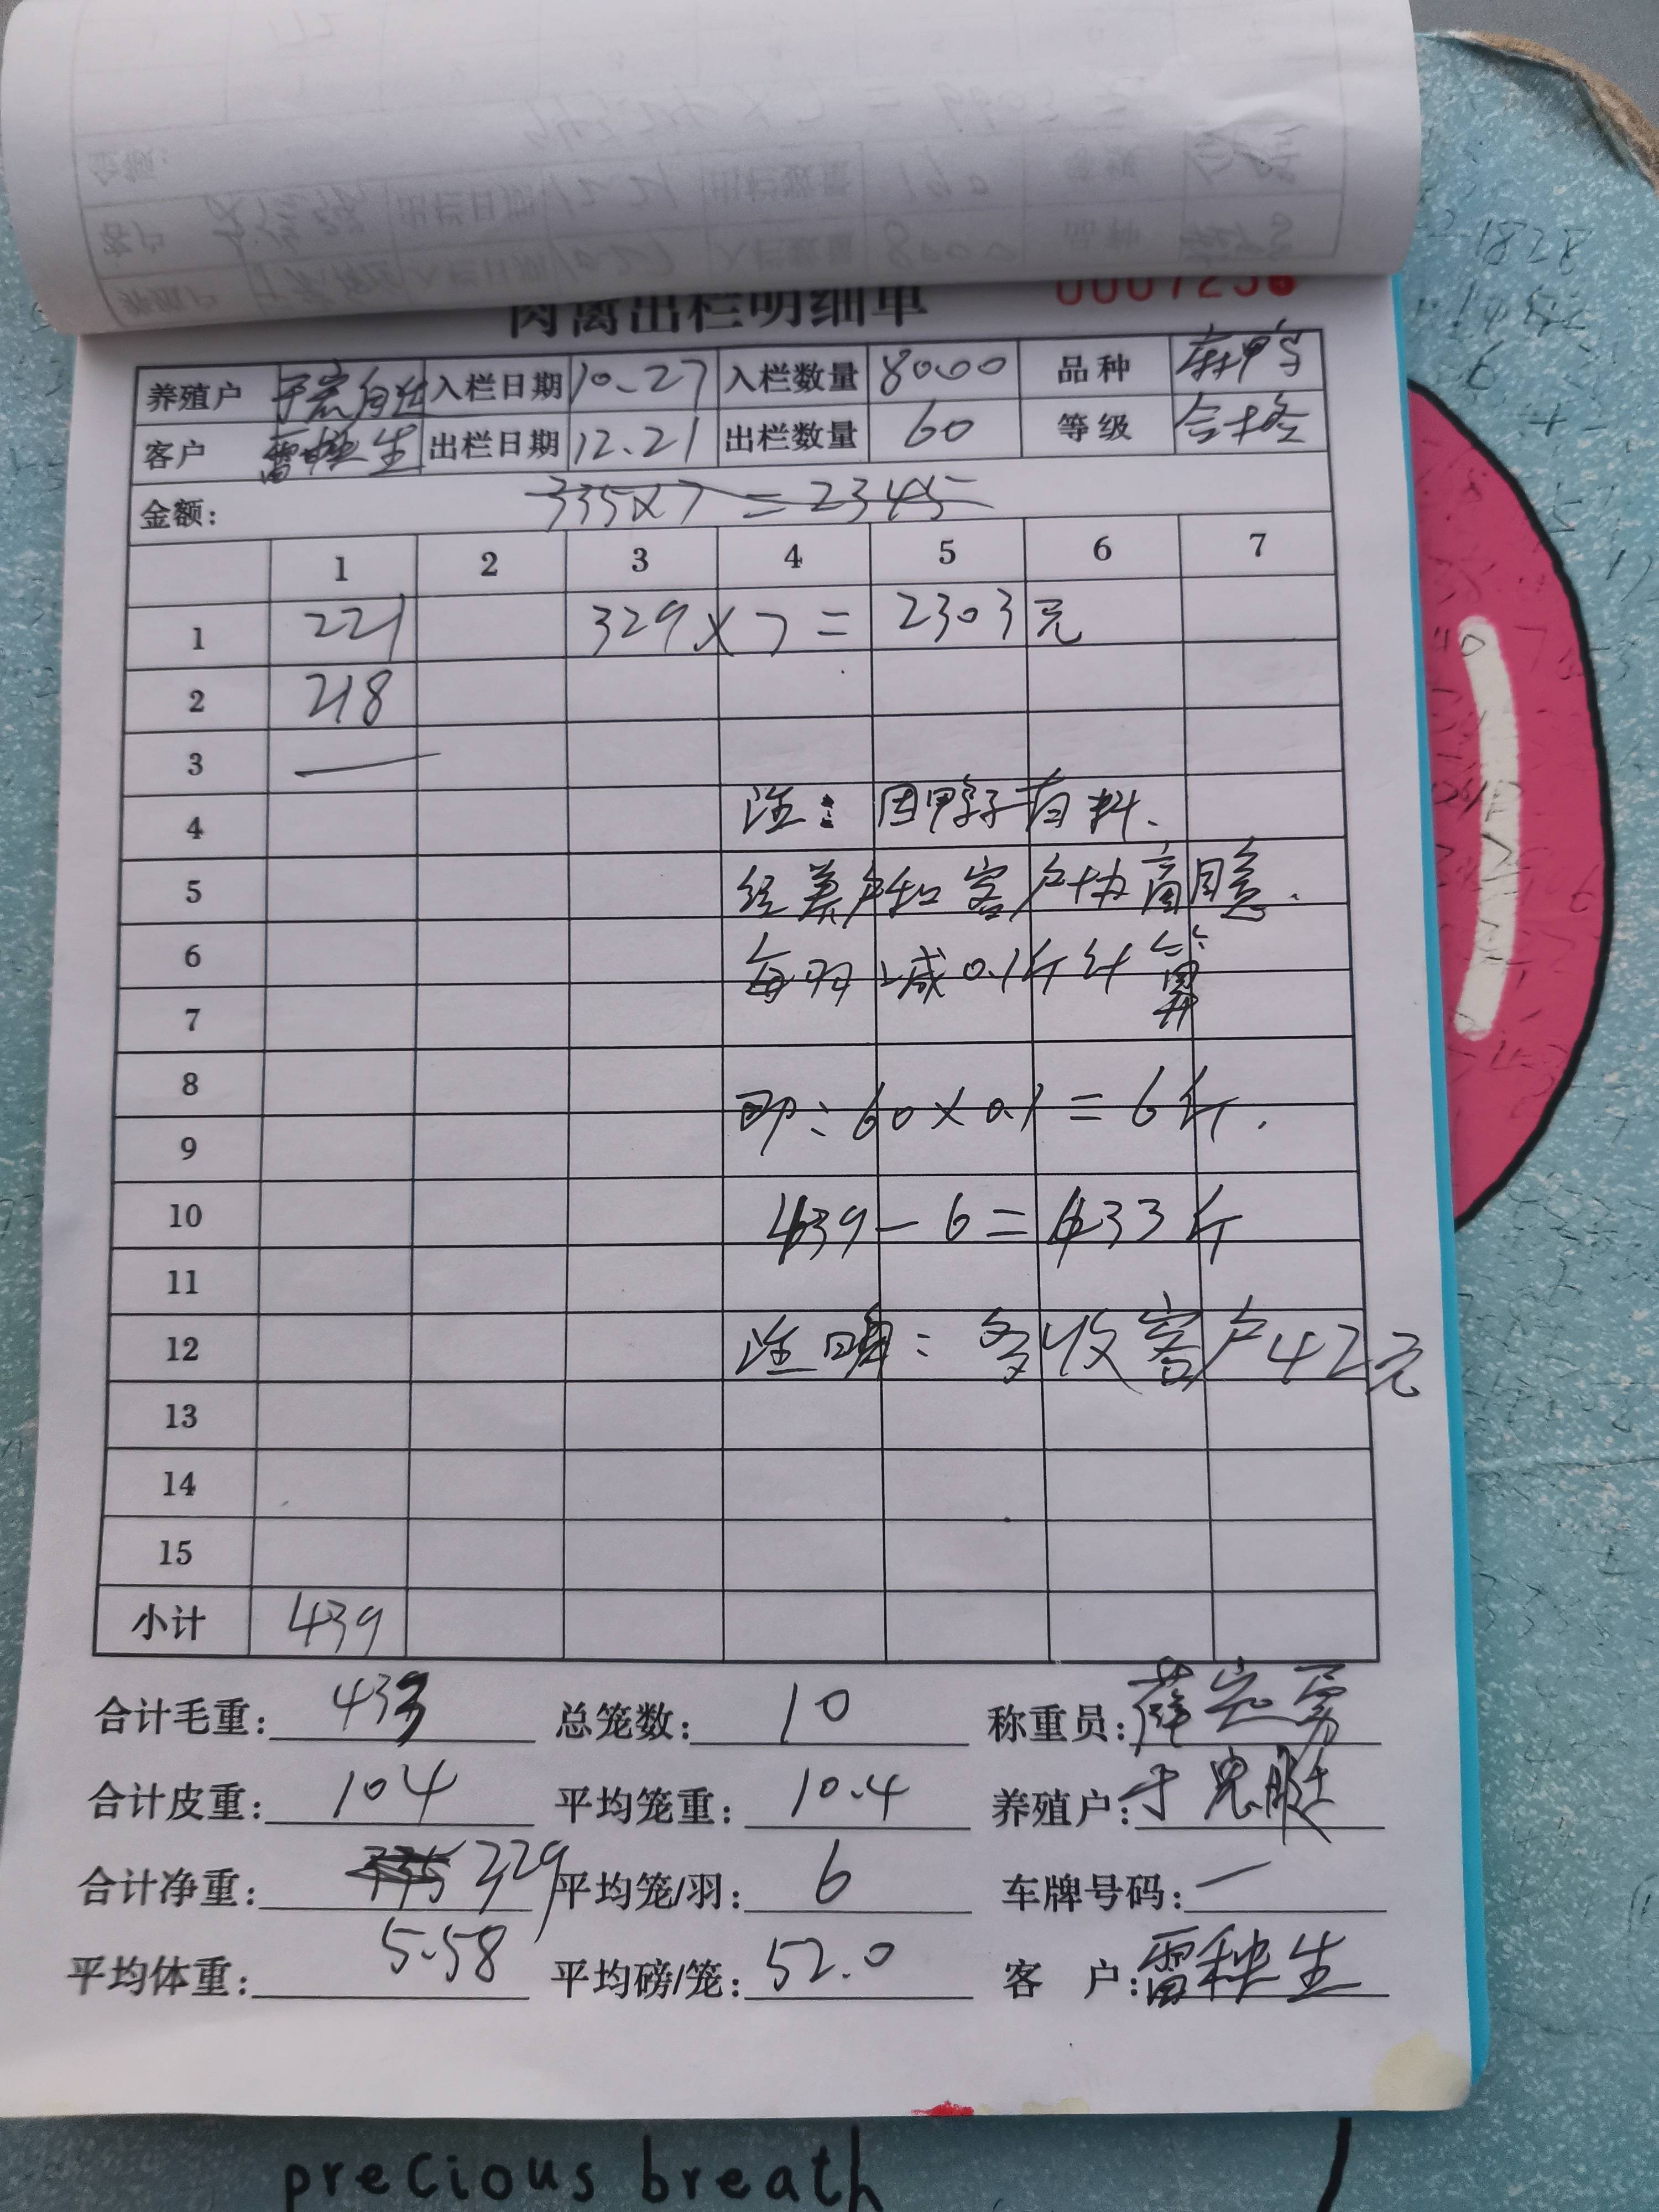 肉禽出栏明细单 000725
养殖户 入栏日期 10.27 入栏数量 8000 品种 麻鸭
客户 雷秧生 出栏日期 12.21 出栏数量 60 等级 合格
金额: 335×7=2345
1 2 3 4 5 6 7
1 221 329×7=2303元
2 218
3 —
4 注: 因鸭子有料、
5 经养户和客户协商同意.
6 每羽减0.1斤计算
7
8 即:60×0.1=6斤.
9
10 439-6=433斤
11
12 注明:多收客户42元
13
14
15
小计 439
合计毛重: 433 总笼数: 10 称重员:
合计皮重: 104 平均笼重: 10.4 养殖户:
合计净重: 335 329 平均笼/羽: 6 车牌号码: —
平均体重: 5.58 平均磅/笼: 52.0 客 户: 雷秧生
precious breath